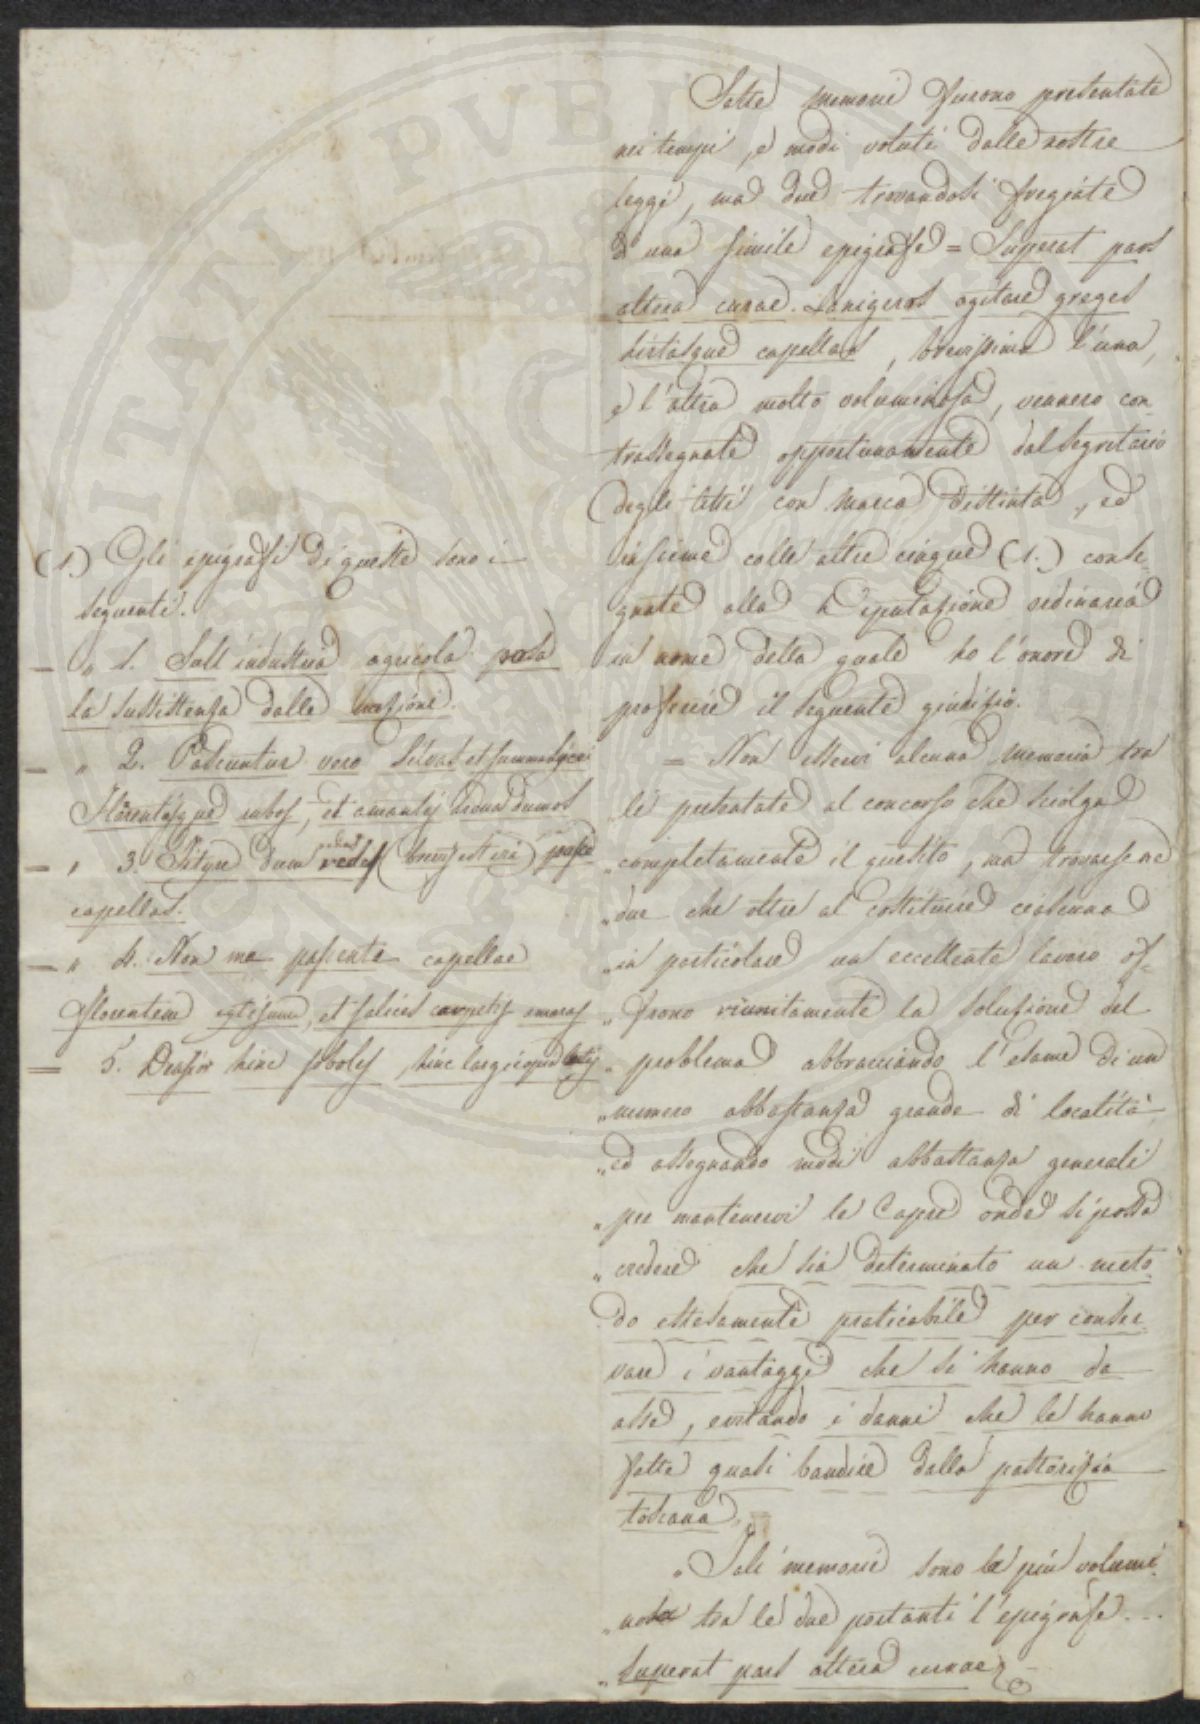 Sette memorie furono presentate
nei tempi, e modi voluti dalle nostre
leggi, ma due trovandosi fregiate
d'una simile epigrafe = Superat pars
altera curae. Lanigeros agitare greges
hirtasque capellas, brevissima l'una,
e l'altra molto voluminosa, vennero con-
trassegnate opportunamente dal Segretario
degli Atti con marca distinta, ed
insieme colle altre cinque (1.) conse-
gnate alla Deputazione ordinaria
in nome della quale ho l'onore di
proferire il seguente giudizio.
= Non esservi alcuna memoria tra
le presentate al concorso che sciolga
„ completamente il quesito, ma trovarsene
„ due che oltre al costituire ciascuna
„ in particolare un eccellente lavoro of-
„ frono riunitamente la soluzione del
„ problema abbracciando l'esame di un
„ numero abbastanza grande di località,
„ ed assegnando modi abbastanza generali
„ per mantenervi le Capre onde si possa
„ credere che sia determinato un meto-
do estesamente praticabile per conser-
vare i vantaggi che si hanno da
esse, evitando i danni che le hanno
fatte quasi bandire dalla pastorizia
toscana. =
„ Tali memorie sono la più volumi-
„ nosa tra le due portanti l'epigrafe ...
„ Superat pars altera curae
(1.) Gli epigrafi di queste sono i
seguenti.
— „ 1. Sull'industria agricola posa
la sussistenza delle nazioni.
— „ 2. Pascuntur vero silvas et summa Lycaei
Horrentesque rubos, et amantes ardua dumos
— „ 3. Tityre dum redeo (brevis est via) pasce
capellas.
— „ 4. Non me pascente capellae
florentem cytisum, et salices carpetis amaras
— 5. Densior hinc soboles, hinc largi copia lactis